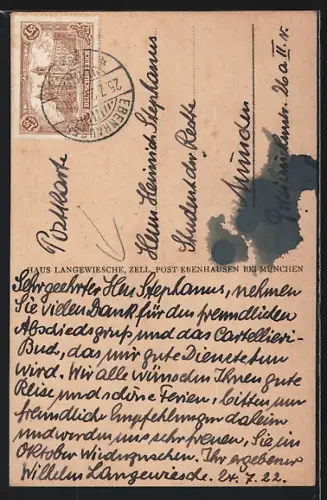 Postkarte
Herrn Heinrich Stephanus
Student der Rechte
München
26a II. r.
EBENHAUSEN
HAUS LANGEWIESCHE, ZELL, POST EBENHAUSEN BEI MÜNCHEN
Sehr geehrter Herr Stephanus, nehmen
Sie vielen Dank für den freundlichen
Abschiedsgruß und das Cartellieri-
Buch, das mir gute Dienste tun
wird. Wir alle wünschen Ihnen gute
Reise und schöne Ferien, bitten um
freundliche Empfehlungen daheim
und werden uns sehr freuen, Sie im
Oktober wiederzusehen. Ihr ergebener
Wilhelm Langewiesche. 24.7.22.